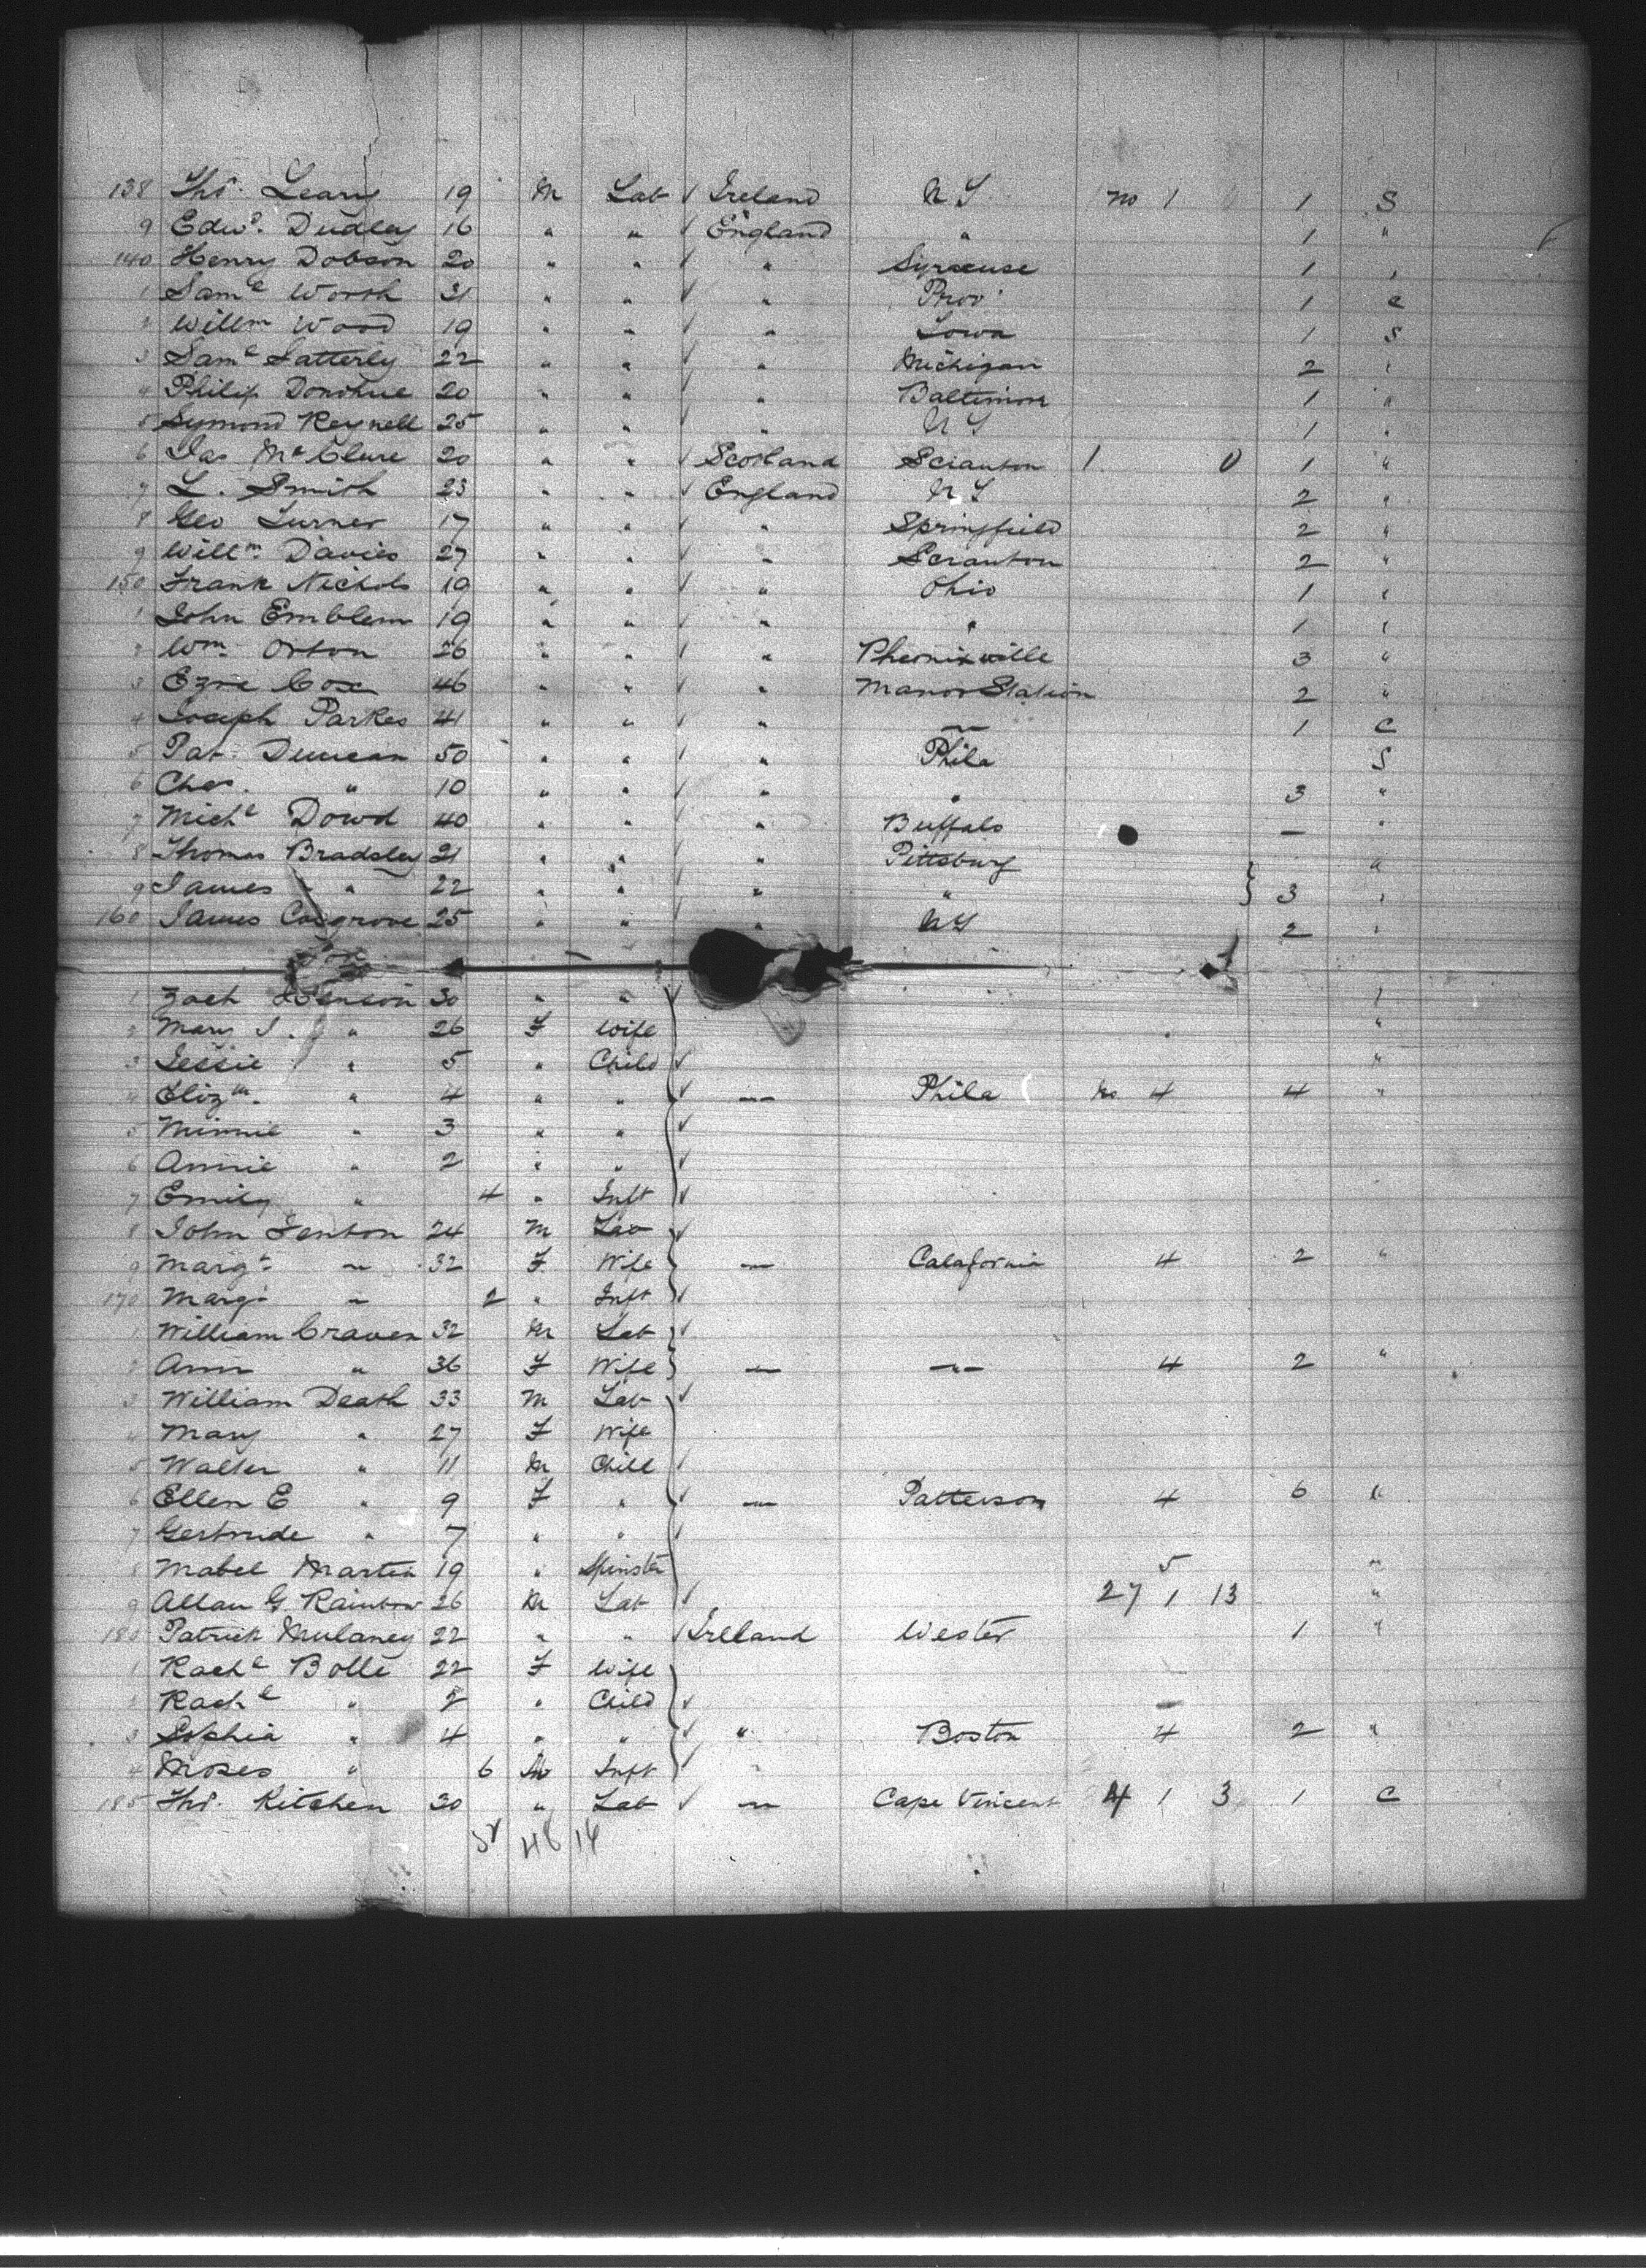 138 Thos. Leary 19 M Lab √ Ireland N Y no 1 1 S
9 Edwd. Dudley 16 " " √ England " 1 "
140 Henry Dobson 20 " " √ " Syracuse 1 "
1 Saml Worth 31 " " √ " Prov. 1 c
2 Willm Wood 19 " " √ " Iowa 1 S
3 Saml Satterly 22 " " √ " Michigan 2 "
4 Philip Donohue 20 " " √ " Baltimore 1 "
5 Symond Reynell 25 " " √ " N Y 1 "
6 Jas McClure 20 " " √ Scotland Scranton 1 0 1 "
7 L. Smith 23 " " √ England N Y 2 "
8 Geo Turner 17 " " √ " Springfield 2 "
9 Willm. Davies 27 " " √ " Scranton 2 "
150 Frank Nichols 19 " " √ " Ohio 1 "
1 John Emblem 19 " " √ " " 1 "
2 Wm. Orton 26 " " √ " Pheonixville 3 "
3 Ezra Cox 46 " " √ " Manor Station 2 "
4 Joseph Parkes 41 " " √ " " 1 C
5 Pat. Duncan 50 " " √ " Phila S
6 Chas. " 10 " " √ " " 3 "
7 Michl Dowd 40 " " " Buffalo — "
8 Thomas Bradsley 21 " " √ " Pittsburg "
9 James " 22 " " √ " " } 3 "
160 James Cosgrove 25 " " √ " N Y 2 "
1 Zach 30 " " √ "
2 Mary J. " 26 F Wife "
3 Jessie " 5 " Child √ "
4 Elizth. " 4 " " √ " Phila No 4 4 "
5 Minnie " 3 " " √
6 Annie " 2 " " √
7 Emily " 4 " Inft √
8 John Fenton 24 M Lab √
9 Margt. " 32 F Wife } " Calafornia 4 2 "
170 Margt " 2 " Inft √
1 William Craven 32 M Lab √
2 Ann " 36 F Wife } " " 4 2 "
3 William Death 33 M Lab √
4 Mary " 27 F Wife
5 Walter " 11 M Child √
6 Ellen E " 9 F " √ " Patterson 4 6 "
7 Gertrude " 7 " " √
8 Mabel Martin 19 " Spinster 5 "
9 Allan G Rainbow 26 M Lab √ 27 1 13 "
180 Patrick Mulaney 22 " " √ Ireland Wester 1 "
1 Rachl Bolle 22 F Wife
2 Rachl " 2 " Child √
3 Sophia " 4 " " √ " Boston 4 2 "
4 Moses " 6 M Inft √
185 Thos. Kitchen 30 " Lab √ " Cape Vincent 4 1 3 1 C